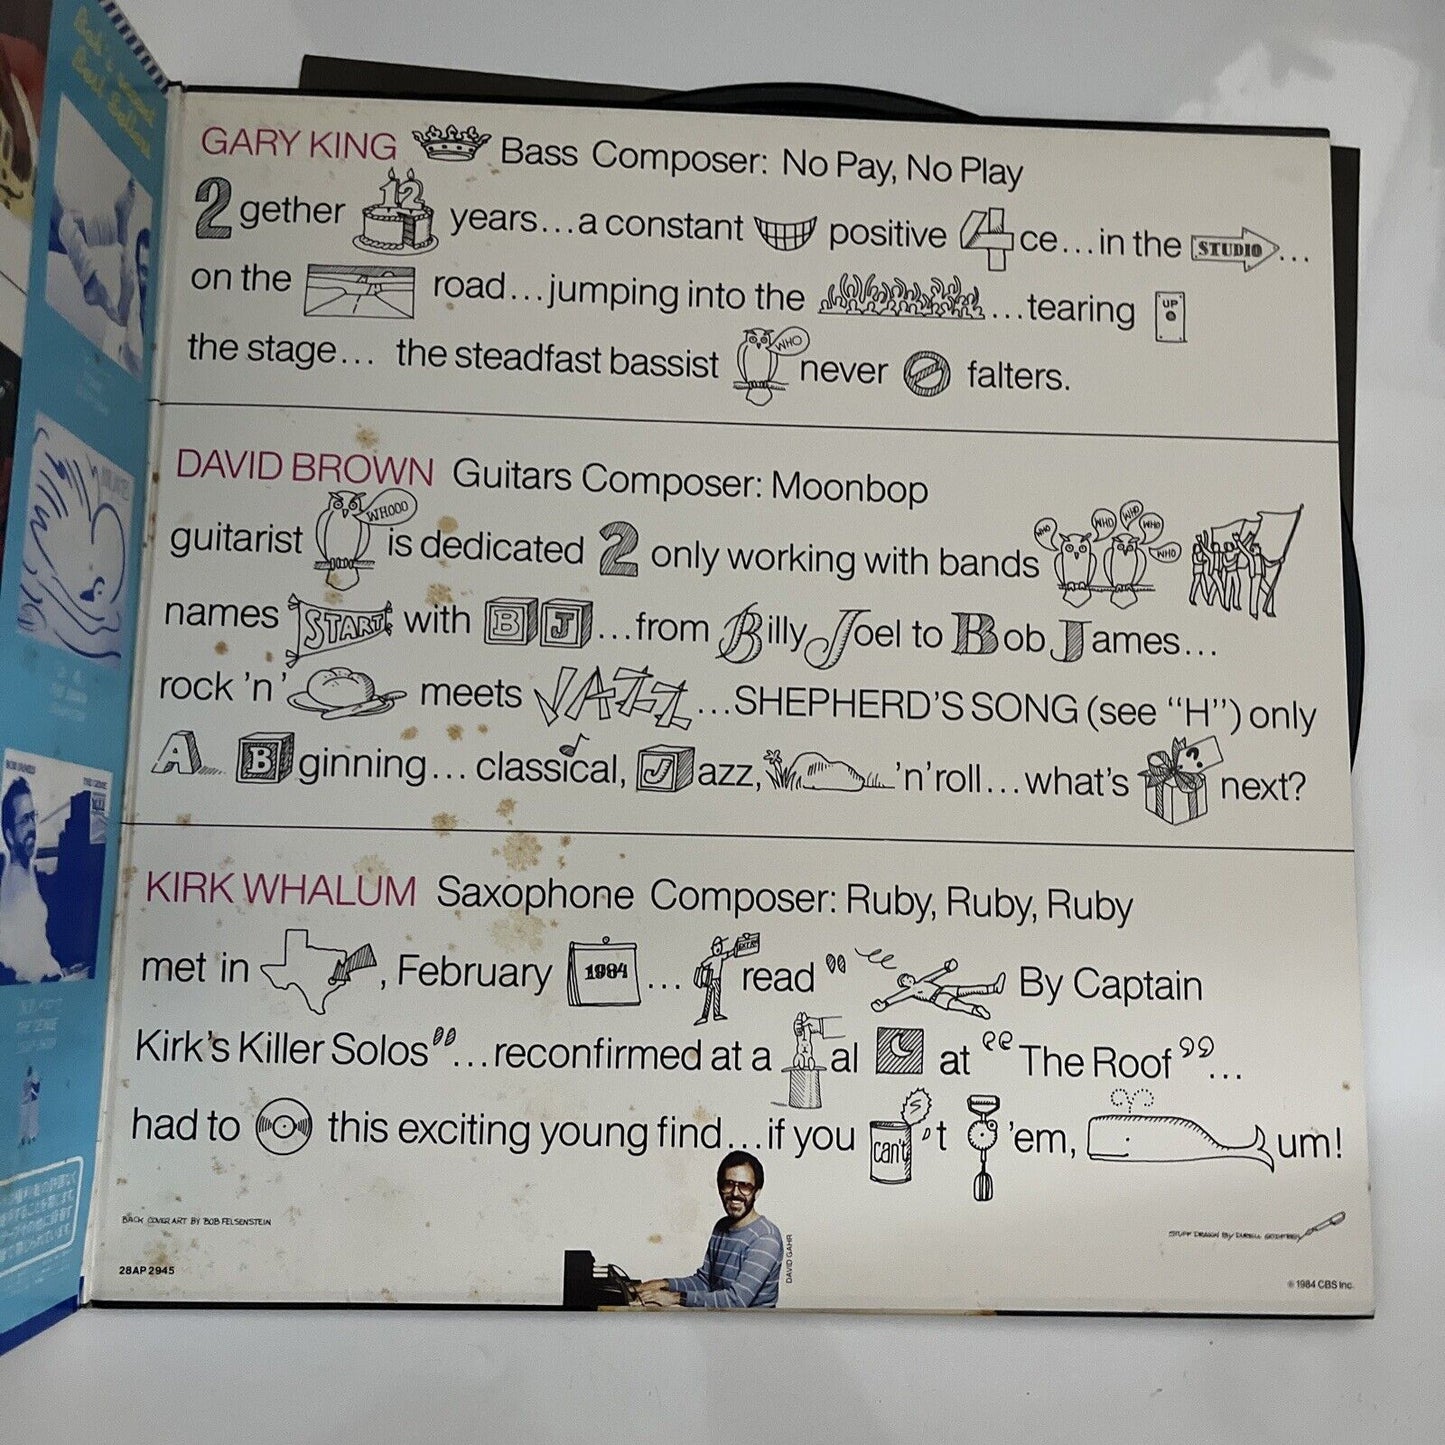 GARY KING Bass Composer: No Pay, No Play
2gether 12 years...a constant positive 4ce...in the STUDIO...
on the road...jumping into the ...tearing UP
the stage... the steadfast bassist WHO never falters.
DAVID BROWN Guitars Composer: Moonbop
guitarist WHOOO is dedicated 2 only working with bands WHO WHO WHO WHO WHO
names START with B J...from Billy Joel to Bob James...
rock 'n' meets JAZZ...SHEPHERD'S SONG (see "H") only
A Bginning... classical, Jazz, 'n' roll...what's ? next?
KIRK WHALUM Saxophone Composer: Ruby, Ruby, Ruby
met in , February 1984... EXTRA read " By Captain
Kirk's Killer Solos"...reconfirmed at a al at "The Roof"...
had to this exciting young find...if you can't 't 'em, um!
BACK COVER ART BY BOB FELSENSTEIN
DAVID GAHR
28AP 2945
© 1984 CBS Inc.